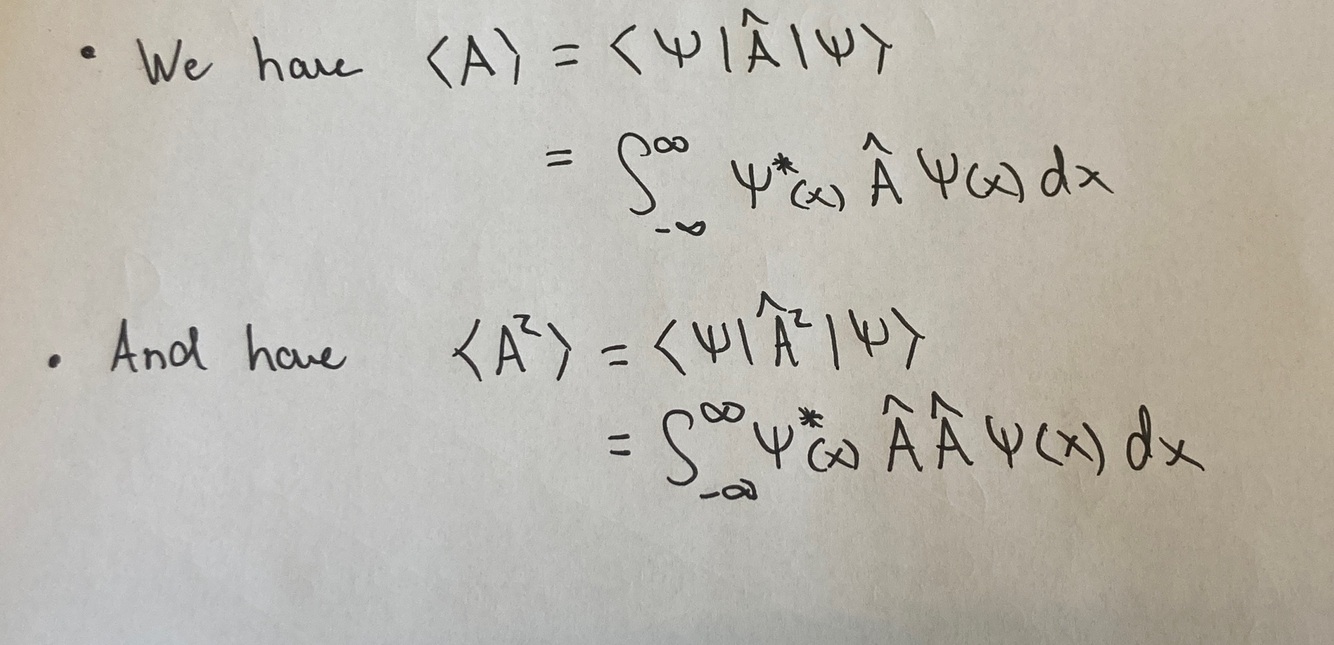 • We have ⟨A⟩ = ⟨Ψ|Â|Ψ⟩
= ∫_{-∞}^{∞} Ψ*(x) Â Ψ(x) dx
• And have ⟨A²⟩ = ⟨Ψ|Â²|Ψ⟩
= ∫_{-∞}^{∞} Ψ*(x) Â Â Ψ(x) dx